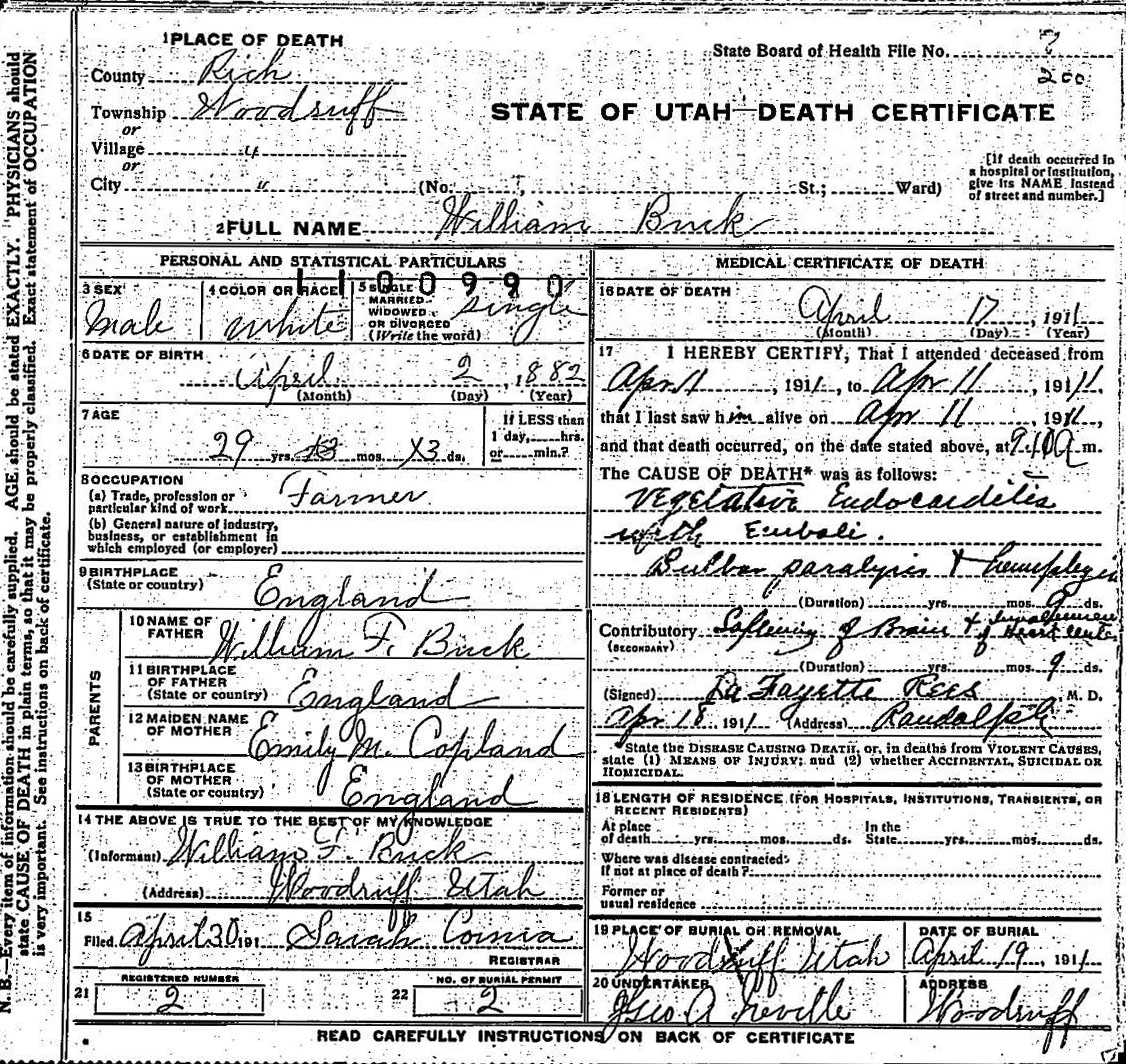 1 PLACE OF DEATH
State Board of Health File No. 2
200
County Rich
Township Woodruff
STATE OF UTAH—DEATH CERTIFICATE
or
Village "
or
City "
(No. St.; Ward)
[If death occurred in
a hospital or institution,
give its NAME instead
of street and number.]
2 FULL NAME William Buck
PERSONAL AND STATISTICAL PARTICULARS
1100990
3 SEX
Male
4 COLOR OR RACE
White
5 SINGLE
MARRIED
WIDOWED
OR DIVORCED
(Write the word)
Single
6 DATE OF BIRTH
April 2, 1882
(Month) (Day) (Year)
7 AGE
29 yrs. mos. ds.
If LESS than
1 day, hrs.
or min.?
8 OCCUPATION
(a) Trade, profession or
particular kind of work Farmer
(b) General nature of industry,
business, or establishment in
which employed (or employer)
9 BIRTHPLACE
(State or country) England
PARENTS
10 NAME OF
FATHER William F. Buck
11 BIRTHPLACE
OF FATHER
(State or country) England
12 MAIDEN NAME
OF MOTHER Emily M. Copland
13 BIRTHPLACE
OF MOTHER
(State or country) England
14 THE ABOVE IS TRUE TO THE BEST OF MY KNOWLEDGE
(Informant) William F. Buck
(Address) Woodruff Utah
15
Filed April 30 191 Sarah Cornia
REGISTRAR
REGISTERED NUMBER
21 2
NO. OF BURIAL PERMIT
22 2
MEDICAL CERTIFICATE OF DEATH
16 DATE OF DEATH
April 17, 1911
(Month) (Day) (Year)
17 I HEREBY CERTIFY, That I attended deceased from
Apr 11, 1911, to Apr 11, 1911,
that I last saw him alive on Apr 11 1911,
and that death occurred, on the date stated above, at m.
The CAUSE OF DEATH* was as follows:
Vegetative Endocarditis
with Emboli.
Bulbar paralysis + hemiplegia
(Duration) yrs. mos. 9 ds.
Contributory Softening of Brain + involvement
of Heart Center
(SECONDARY)
(Duration) yrs. mos. 9 ds.
(Signed) La Fayette Rees M. D.
Apr 18, 1911 (Address) Randolph
*State the DISEASE CAUSING DEATH, or, in deaths from VIOLENT CAUSES,
state (1) MEANS OF INJURY; and (2) whether ACCIDENTAL, SUICIDAL OR
HOMICIDAL.
18 LENGTH OF RESIDENCE (FOR HOSPITALS, INSTITUTIONS, TRANSIENTS, OR
RECENT RESIDENTS)
At place
of death yrs. mos. ds.
In the
State yrs. mos. ds.
Where was disease contracted
If not at place of death?
Former or
usual residence
19 PLACE OF BURIAL OR REMOVAL
Woodruff Utah
DATE OF BURIAL
April 19, 1911
20 UNDERTAKER
Geo A Neville
ADDRESS
Woodruff
READ CAREFULLY INSTRUCTIONS ON BACK OF CERTIFICATE
N. B.—Every item of information should be carefully supplied. AGE should be stated EXACTLY. PHYSICIANS should
state CAUSE OF DEATH in plain terms, so that it may be properly classified. Exact statement of OCCUPATION
is very important. See instructions on back of certificate.